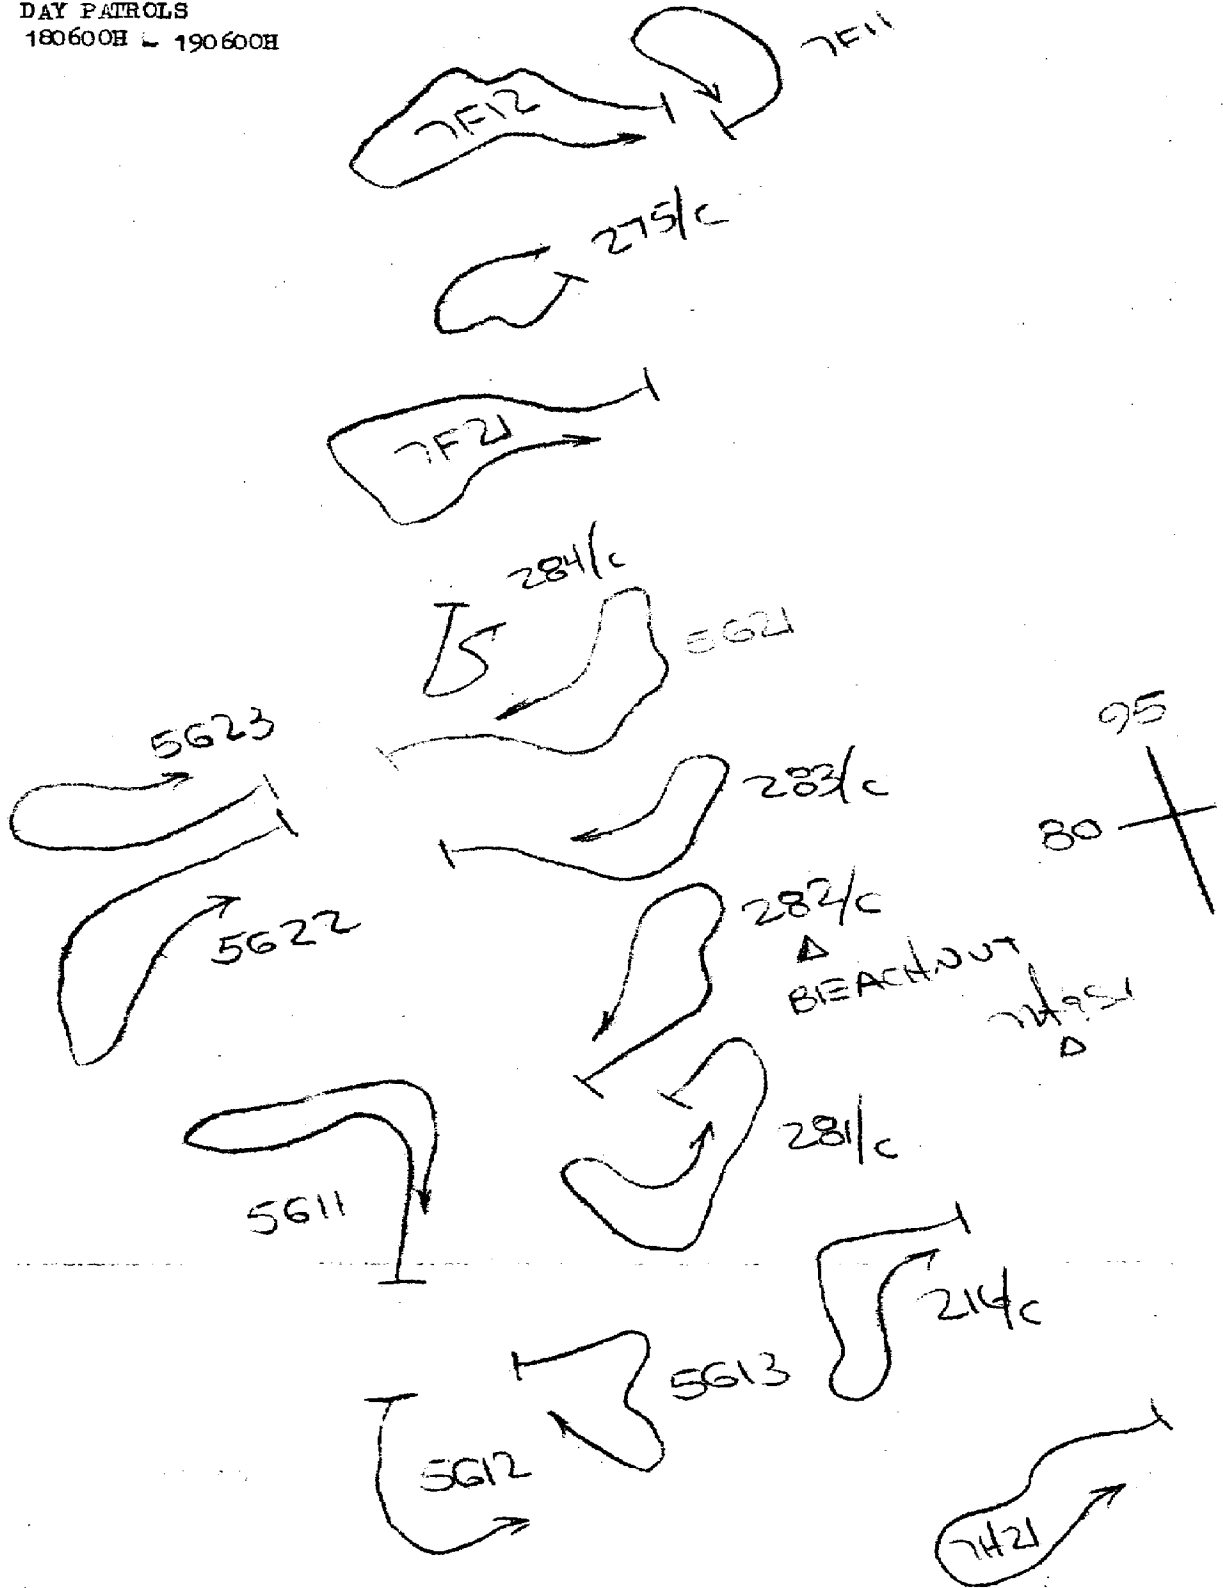 DAY PATROLS
180600H - 190600H
7F11
7F12
275/C
7F21
284/C
5G21
5G23
95
283/C
80
282/C
5G22
BEACHNUT
281/C
5G11
214/C
5G13
5G12
7H21